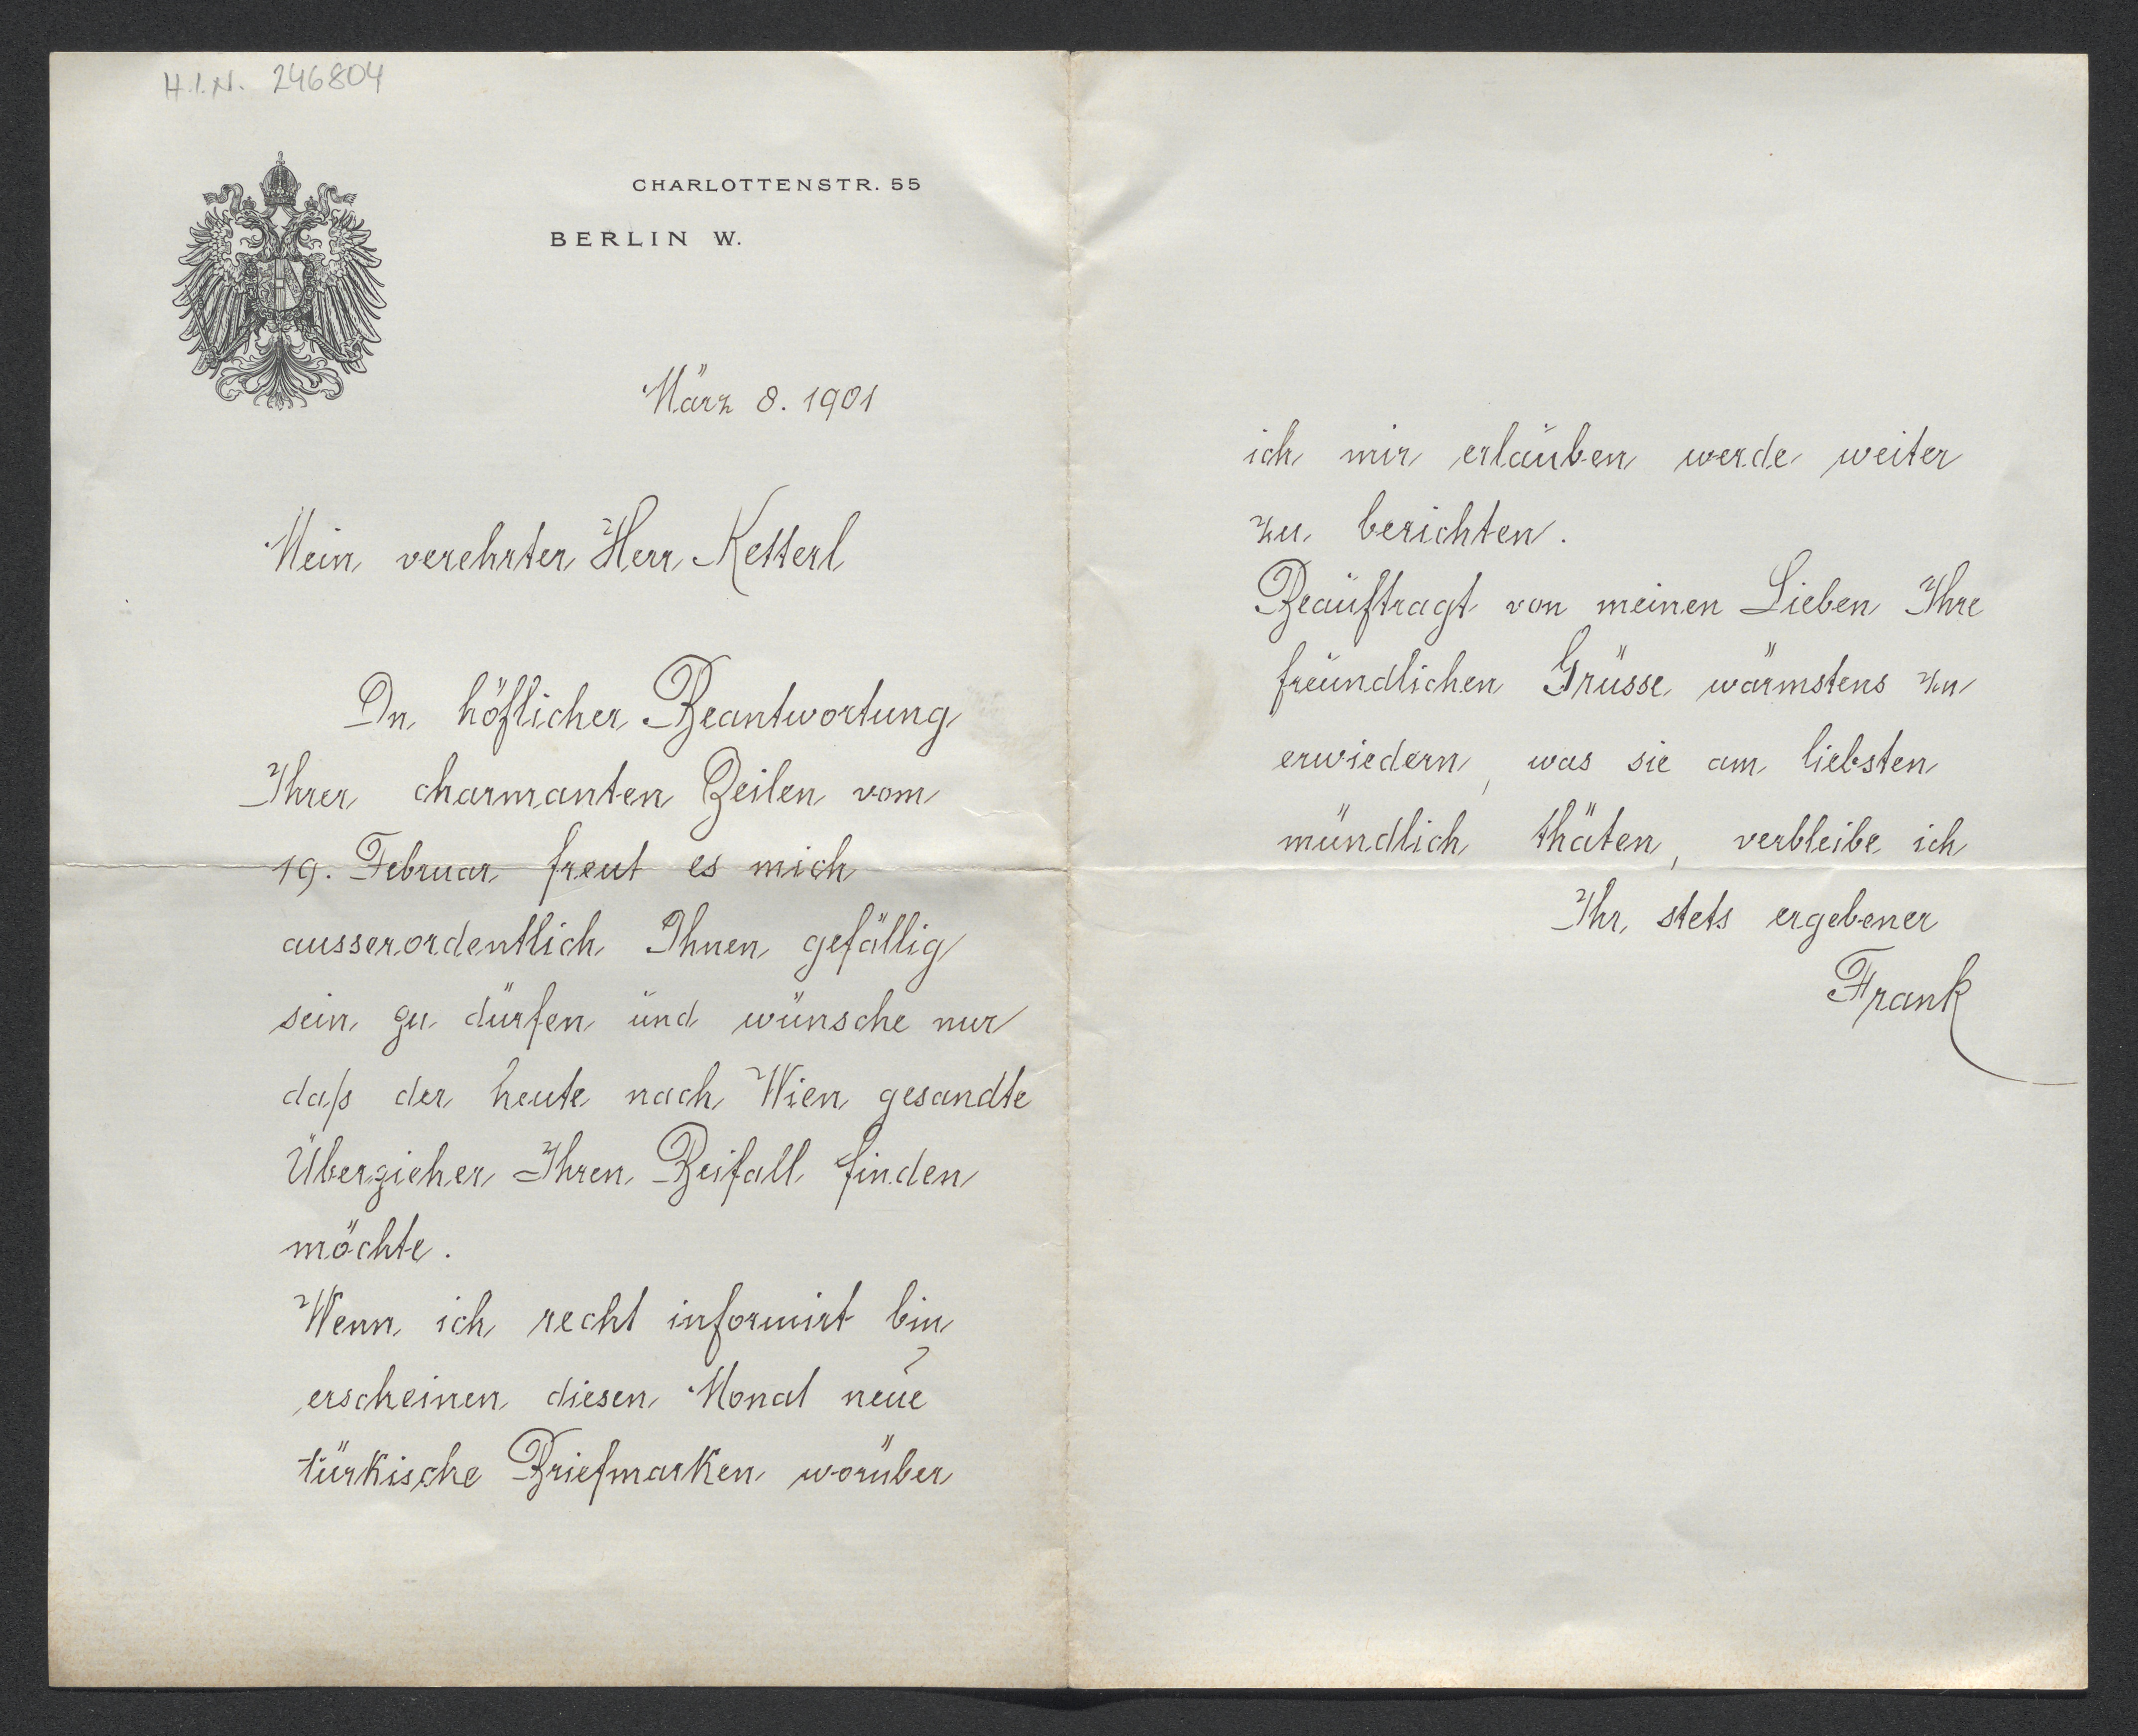 H.I.N. 246804
CHARLOTTENSTR. 55
BERLIN W.
März 8. 1901
Mein verehrter Herr Ketterl
In höflicher Beantwortung
Ihrer charmanten Zeilen vom
19. Februar freut es mich
ausserordentlich Ihnen gefällig
sein zu dürfen und wünsche nur
daß der heute nach Wien gesandte
Überzieher Ihren Beifall finden
möchte.
Wenn ich recht informirt bin
erscheinen diesen Monat neue
türkische Briefmarken worüber
ich mir erlauben werde weiter
zu berichten.
Beauftragt von meinen Lieben Ihre
freundlichen Grüsse wärmstens zu
erwiedern, was sie am liebsten
mündlich thäten, verbleibe ich
Ihr stets ergebener
Frank